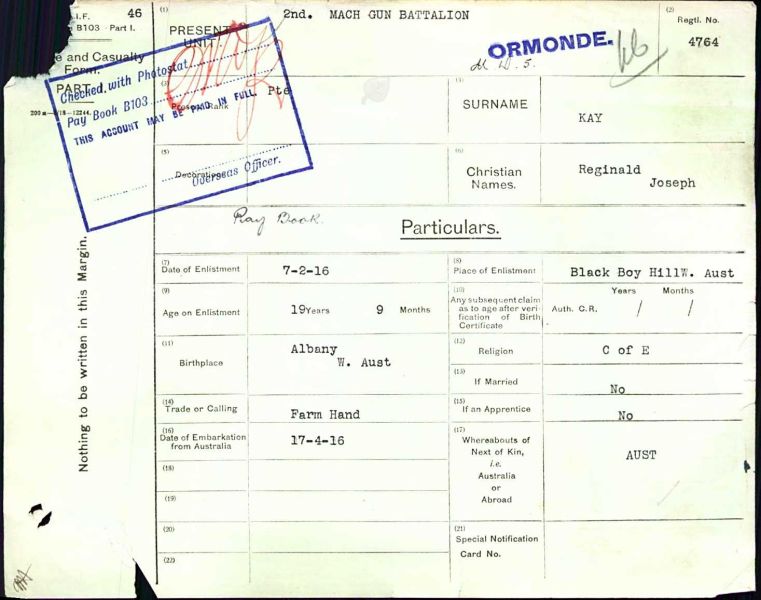 A.I.F. 46
B103 - Part I.
e and Casualty
Form.
PART
(1) PRESENT UNIT.
2nd. MACH GUN BATTALION
ORMONDE.
(2) Regtl. No.
4764
Checked with Photostat
Pay Book B103
THIS ACCOUNT MAY BE PAID IN FULL.
Overseas Officer.
Rank
Pte
(3) SURNAME
KAY
(5) Decorations
(6) Christian Names.
Reginald
Joseph
Pay Book.
Particulars.
Nothing to be written in this Margin.
(7) Date of Enlistment 7-2-16
(8) Place of Enlistment Black Boy HillW. Aust
(9) Age on Enlistment 19 Years 9 Months
(10) Any subsequent claim
as to age after veri-
fication of Birth
Certificate
Years Months
Auth. C.R. / /
(11) Birthplace
Albany
W. Aust
(12) Religion C of E
(13) If Married No
(14) Trade or Calling Farm Hand
(15) If an Apprentice No
(16) Date of Embarkation
from Australia
17-4-16
(17) Whereabouts of
Next of Kin,
i.e.
Australia
or
Abroad
AUST
(18)
(19)
(20)
(21)
Special Notification
Card No.
(22)